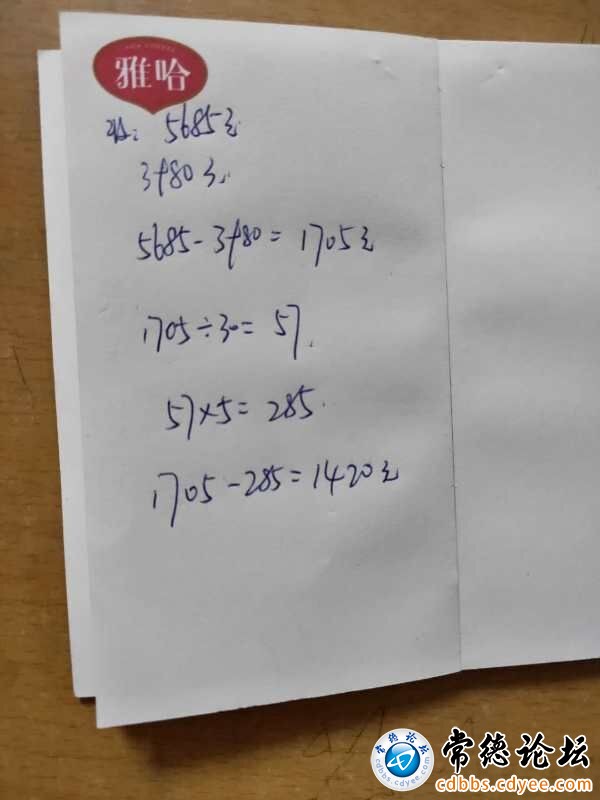 雅哈
5685元
3980元
5685-3980=1705元
1705÷30=57.
57×5=285.
1705-285=1420元
常德论坛
cdbbs.cdyee.com